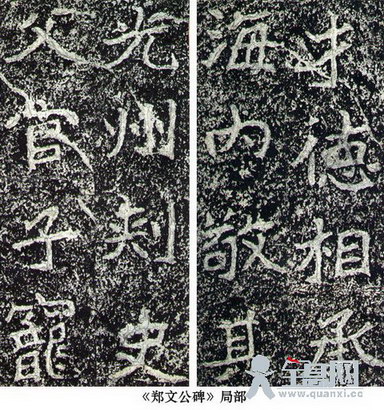 才德相承
海内敬其
光州刺史
父官子寵
《郑文公碑》局部
www.quanxi.cc